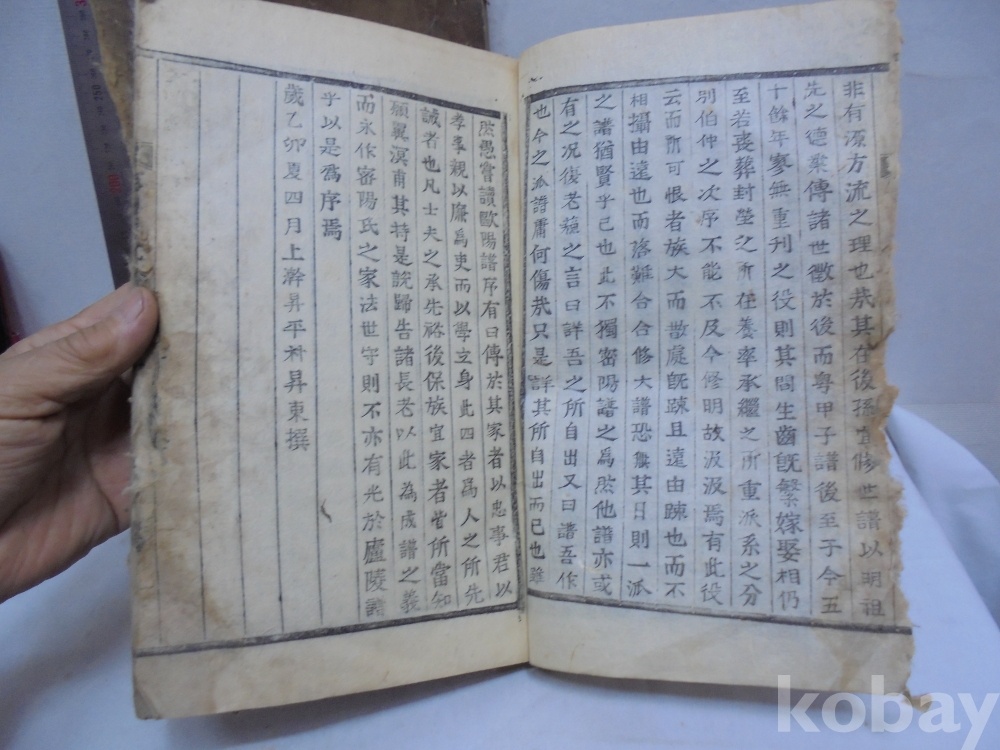 非有源方流之理也哉其在後孫宜修世譜以明祖
先之德業傳諸世徵於後而粤甲子譜後至于今五
十餘年寥無重刊之役則其間生齒旣繁嫁娶相仍
至若喪葬封塋之所在養率承繼之所重派系之分
別伯仲之次序不能不及今修明故汲汲焉有此役
云而所可恨者族大而散處旣踈且遠由踈也而不
相攝由遠也而落難合合修大譜恐無其日則一派
之譜猶賢乎已也此不獨密陽譜之爲然他譜亦或
有之况復老蘓之言曰詳吾之所自出又曰譜吾作
也今之派譜庸何傷哉只是詳其所自出而已也雖
然愚嘗讀歐陽譜序有曰傳於其家者以忠事君以
孝事親以廉爲吏而以學立身此四者爲人之所先
誠者也凡士夫之承先裕後保族宜家者堂所當知
願翼溟甫其持是說歸告諸長老以此為成譜之義
而永作密陽氏之家法世守則不亦有光於廬陵譜
乎以是爲序焉
歲乙卯夏四月上澣昇平朴昇東撰
kobay